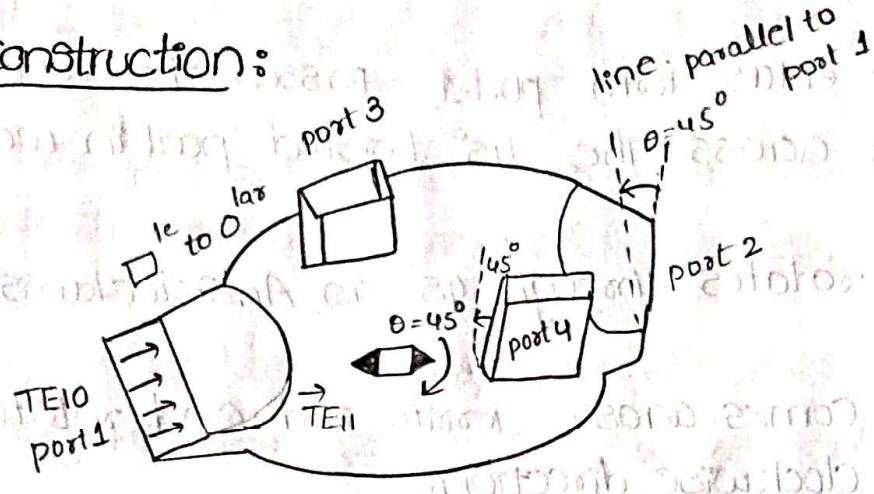 Construction:
line parallel to
port 1
θ=45°
port 3
□le to Olar
port 2
45°
θ=45°
port 4
TE10
port 1
→
TE11